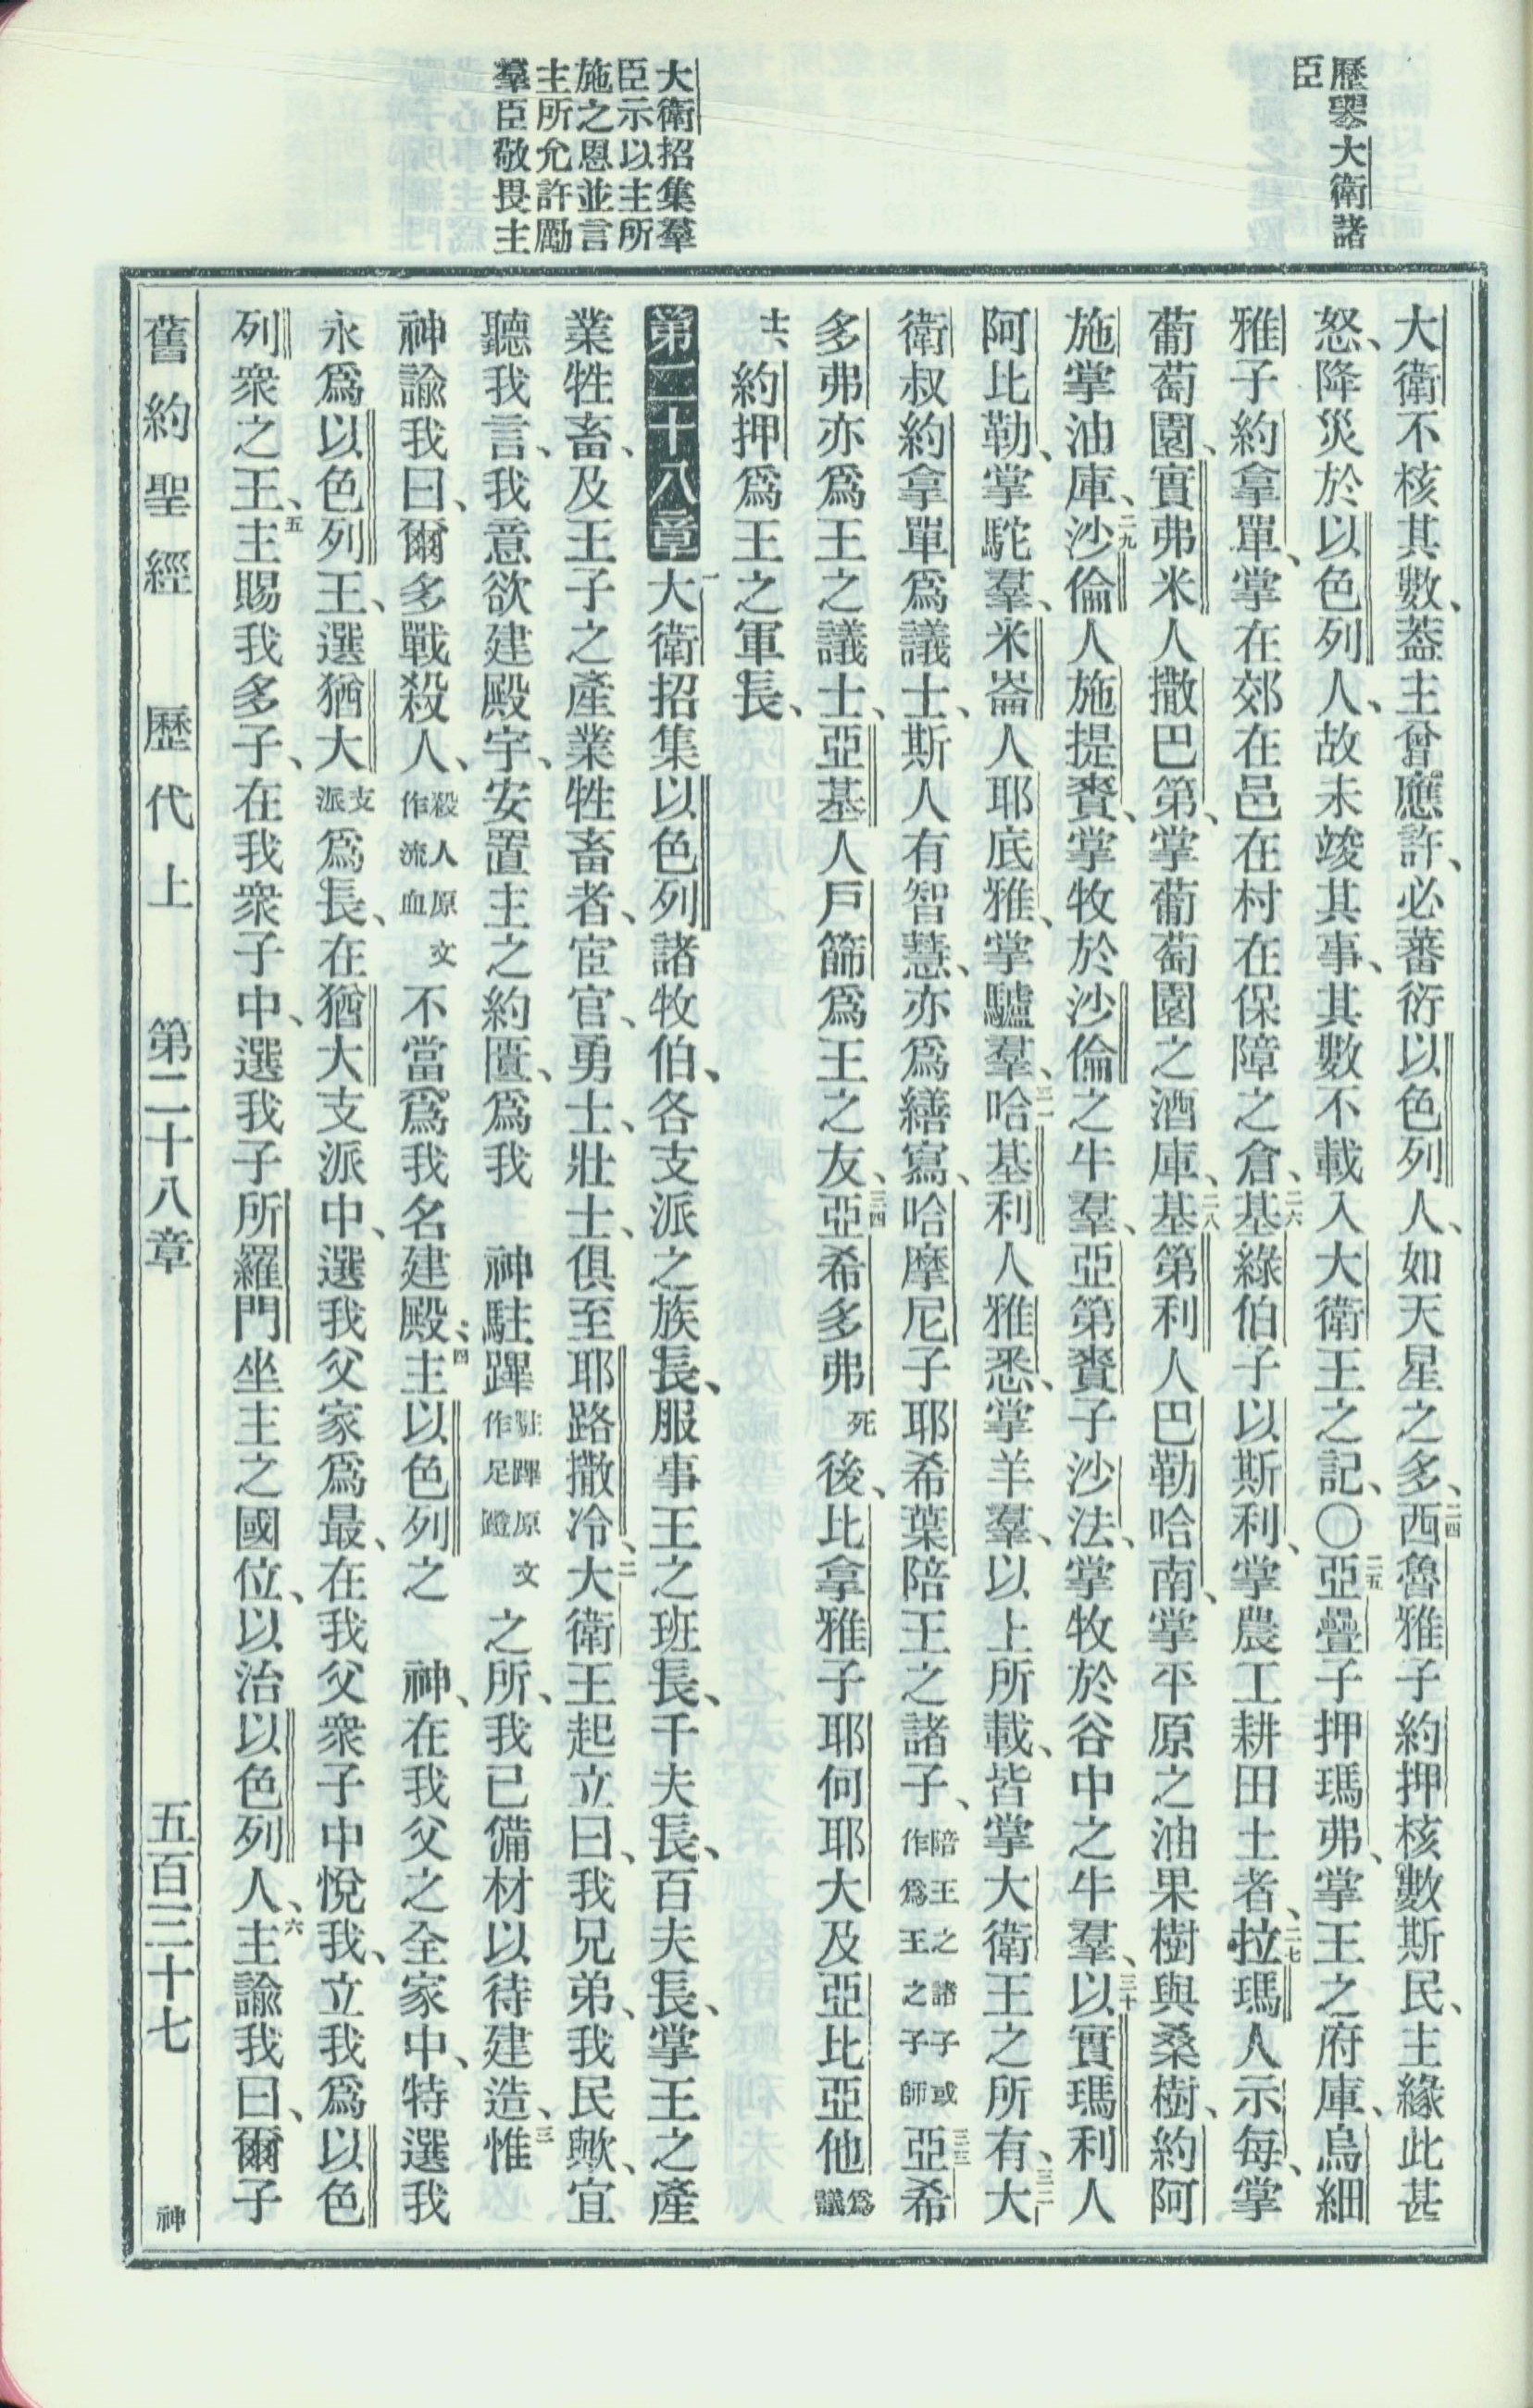 歷舉大衛諸
臣
大衛招集羣
臣示以主所
施之恩並言
主所允許勵
羣臣敬畏主
大衛不核其數、蓋主曾應許、必蕃衍以色列人、如天星之多、二四西魯雅子約押核數斯民、主緣此甚
怒、降災於以色列人、故未竣其事、其數不載入大衛王之記、〇二五亞疊子押瑪弗、掌王之府庫、烏細
雅子約拿單、掌在郊在邑在村在保障之倉、二六基綠伯子以斯利、掌農工耕田土者、二七拉瑪人示每、掌
葡萄園、實弗米人撒巴第、掌葡萄園之酒庫、二八基第利人巴勒哈南、掌平原之油果樹與桑樹、約阿
施掌油庫、二九沙倫人施提賚、掌牧於沙倫之牛羣、亞第賚子沙法、掌牧於谷中之牛羣、三十以實瑪利人
阿比勒、掌駝羣、米崙人耶底雅、掌驢羣、三一哈基利人雅悉、掌羊羣、以上所載、皆掌大衛王之所有、三二大
衛叔約拿單爲議士、斯人有智慧、亦爲繕寫、哈摩尼子耶希葉陪王之諸子、陪王之諸子或作爲王之子師三三亞希
多弗亦爲王之議士、亞基人戶篩爲王之友、三四亞希多弗死後、比拿雅子耶何耶大及亞比亞他爲議
士、約押爲王之軍長、
第二十八章 一大衛招集以色列諸牧伯、各支派之族長、服事王之班長、千夫長、百夫長、掌王之產
業牲畜、及王子之產業牲畜者、宦官、勇士、壯士、俱至耶路撒冷、二大衛王起立曰、我兄弟、我民歟、宜
聽我言、我意欲建殿宇、安置主之約匱、爲我 神駐蹕駐蹕原文作足蹬之所、我已備材以待建造、三惟
神諭我曰、爾多戰殺人、殺人原文作流血不當爲我名建殿、四主以色列之 神、在我父之全家中、特選我
永爲以色列王、選猶大支派爲長、在猶大支派中、選我父家爲最、在我父衆子中悅我、立我爲以色
列衆之王、五主賜我多子、在我衆子中、選我子所羅門坐主之國位、以治以色列人、六主諭我曰、爾子
舊約聖經 歷代上 第二十八章 五百三十七 神